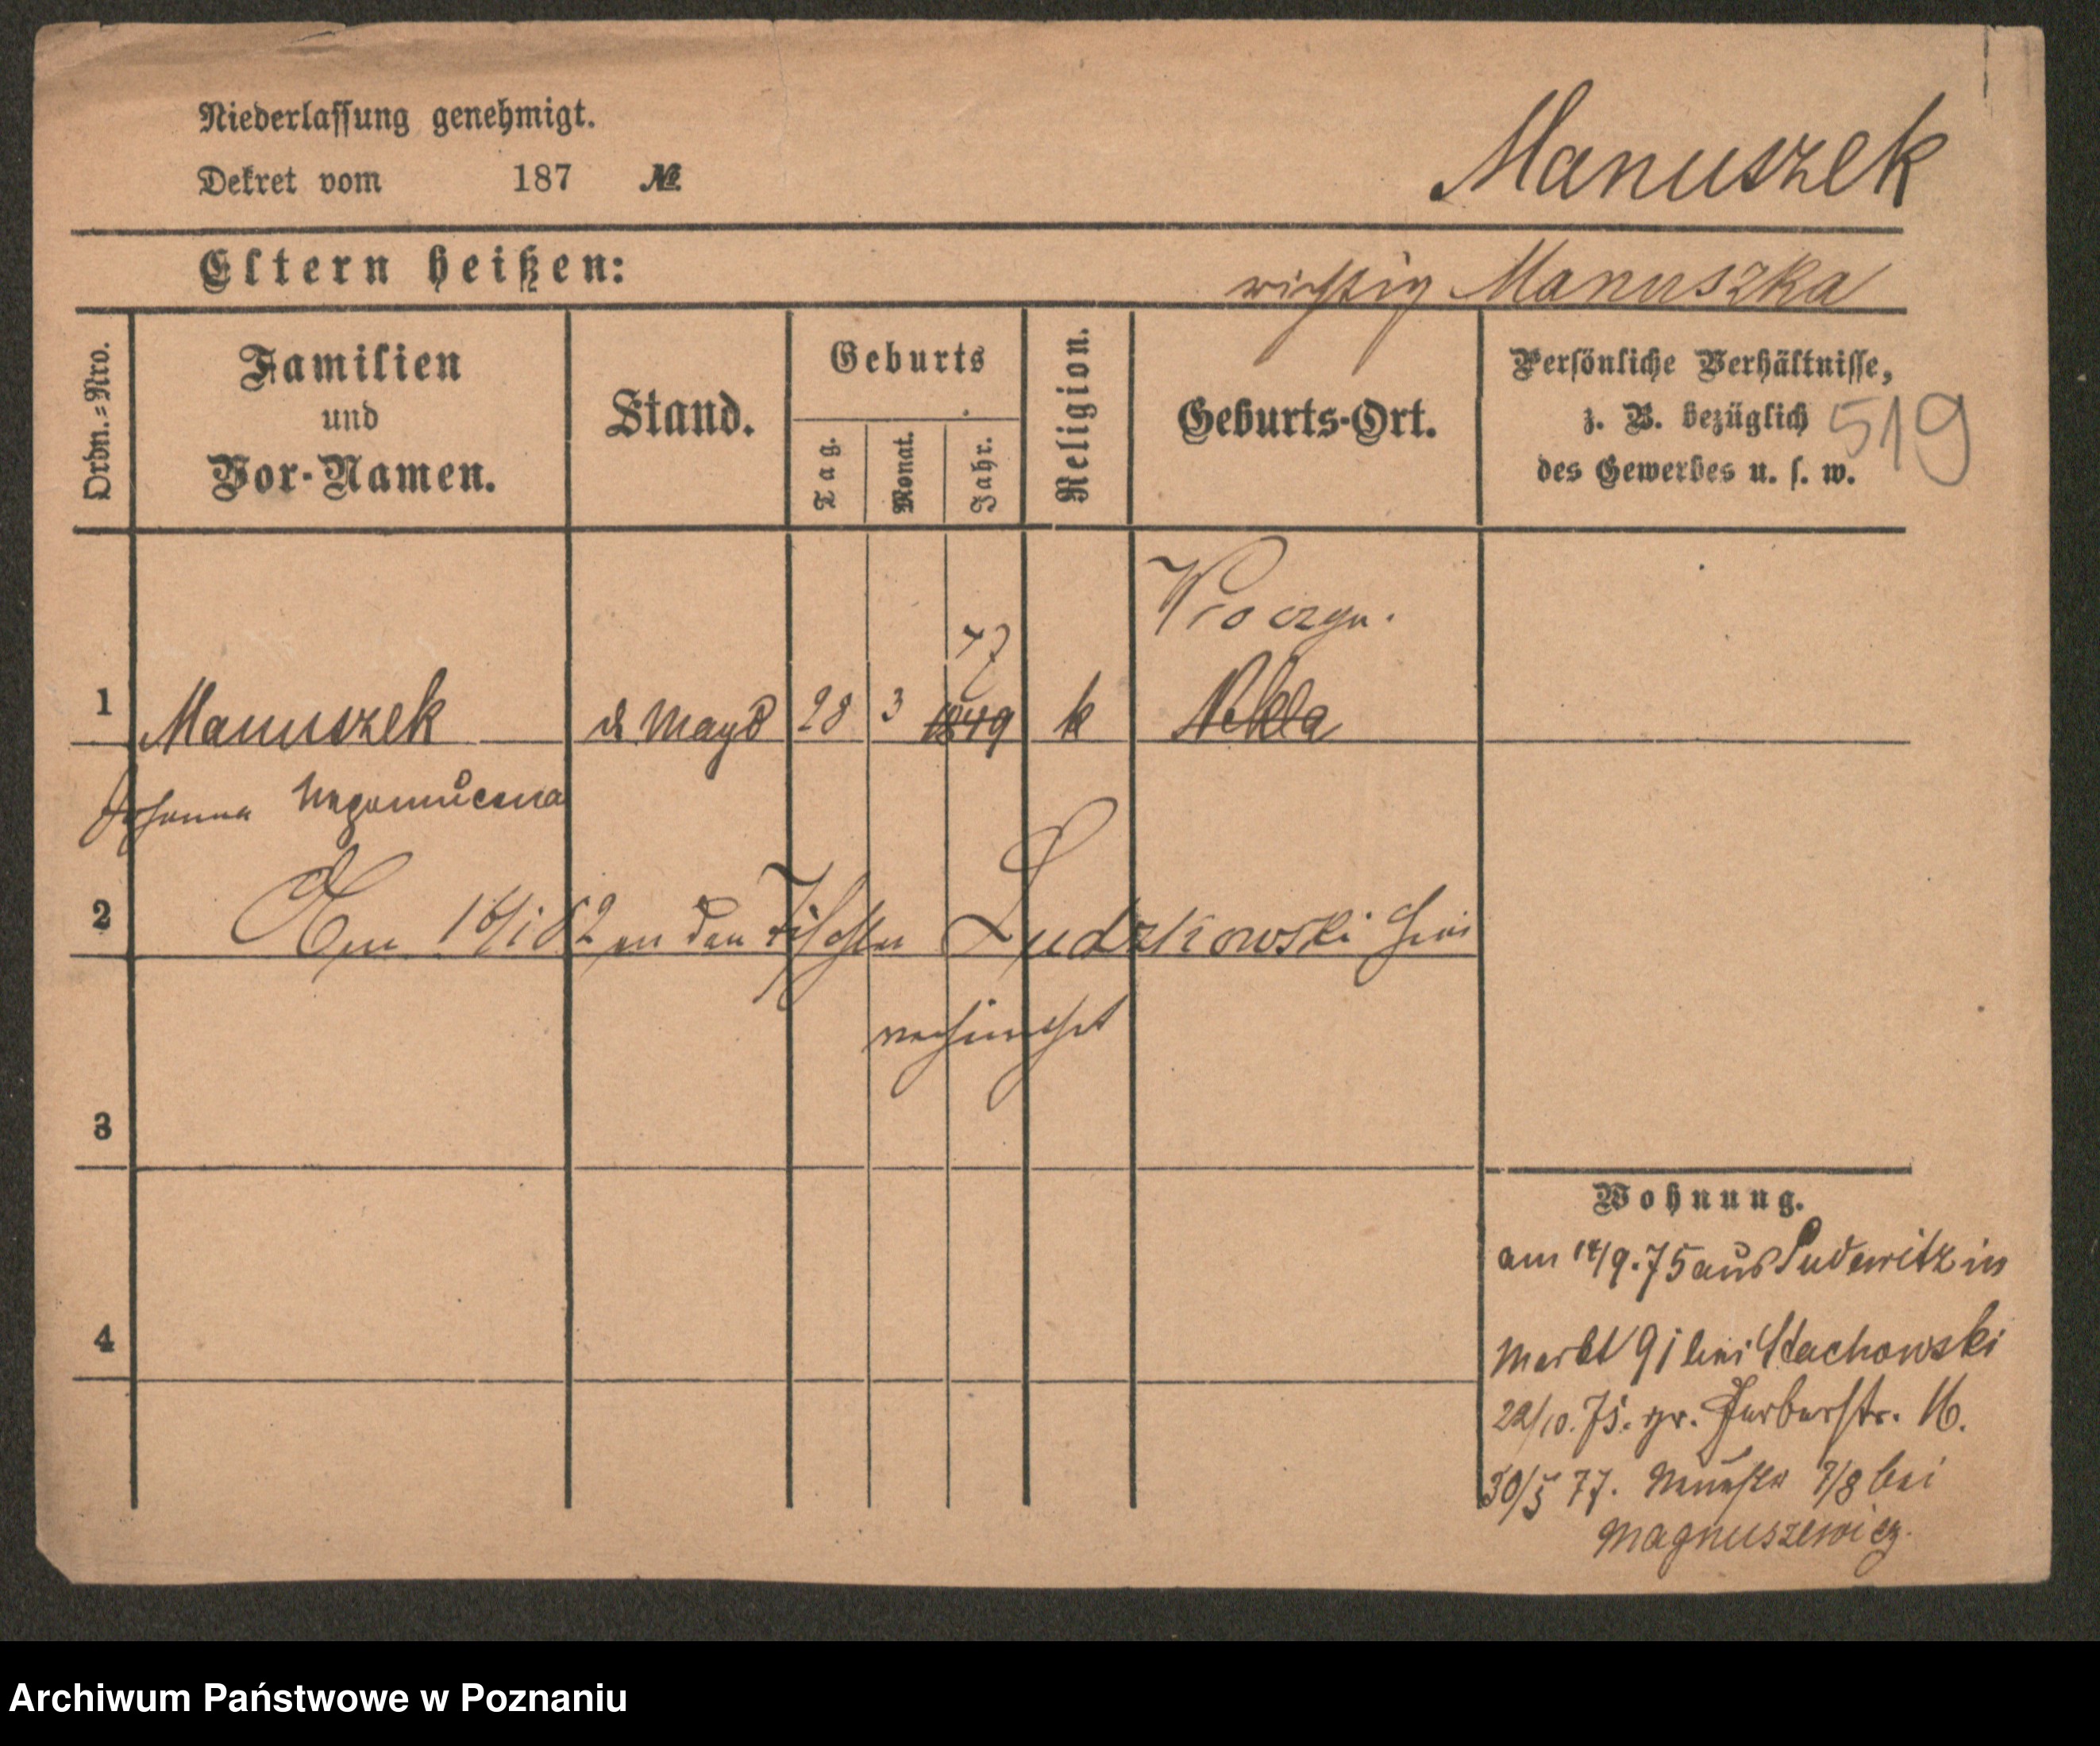 Niederlassung genehmigt.
Dekret vom 187 №
Manuszek
Eltern heißen:
richtig Manuszka
Ordn.=Nro.
Familien
und
Vor-Namen.
Stand.
Geburts
Tag.
Monat.
Jahr.
Religion.
Geburts-Ort.
Persönliche Verhältnisse,
z. B. bezüglich
des Gewerbes u. s. w.
519
47
1 Manuszek d Magd 28 3 1849 k Nekla
Johanna
2 Am 16/1 82 an den Tischler Ludzkowski hier
verheirathet
3
Wohnung.
am 14/9.75 aus Pudewitz in
4
Markt 91 bei Stachowski
22/10.75. gr. Gerberstr. 16.
30/5 77. 7/8 bei
Magnuszewicz.
Archiwum Państwowe w Poznaniu